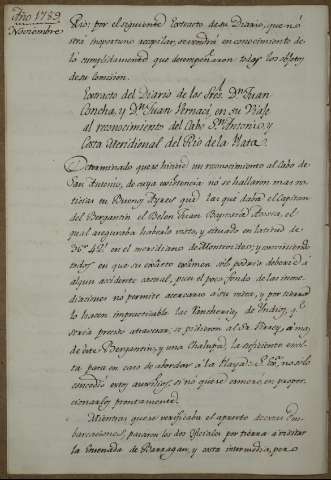 Año 1789
Noviembre
Rio: por el siguiente Extracto de su Diario, que no
será inoportuno acopilar, se vendrá en conocimiento de
lo cumplidamente que desempeñaron todos los objetos
de su comision.
Extracto del Diario de los Sres. Dn. Juan
Concha, y Dn. Juan Vernaci, en su Viaje
al reconocimiento del Cabo Sn. Antonio, y
Costa Meridional del Rio de la Plata.
Determinado que se hiciese un reconocimiento al Cabo de
San Antonio, de cuya existencia no se hallaron mas no-
ticias en Buenos Ayres que las que daba el Capitan
del Bergantin el Belen Juan
qual aseguraba haberlo visto, y situado en latitud de
36°42' en el meridiano de Montevideo; y conviniendo
todos en que su exacto examen solo podria deberse á
algun accidente casual, pues el poco fondo de las inme-
diaciones no permite acercarse á su vista, y por tierra
lo hacen impracticable las Rancherias de Indios, qe.
seria preciso atravesar, se pidieron al Sr. Virrey, á mas
de este Bergantin, y una Chalupa, la suficiente escol-
ta para en caso de abordar á la Playa: S. Ex. no solo
concedió estos auxilios, si no que se esmeró en propor-
cionarlos prontamente.
Mientras que se verificaba el apresto de estas Em-
barcaciones, pasaron los dos Oficiales por tierra á visitar
la Ensenada de Barragan, y costa intermedia, pero